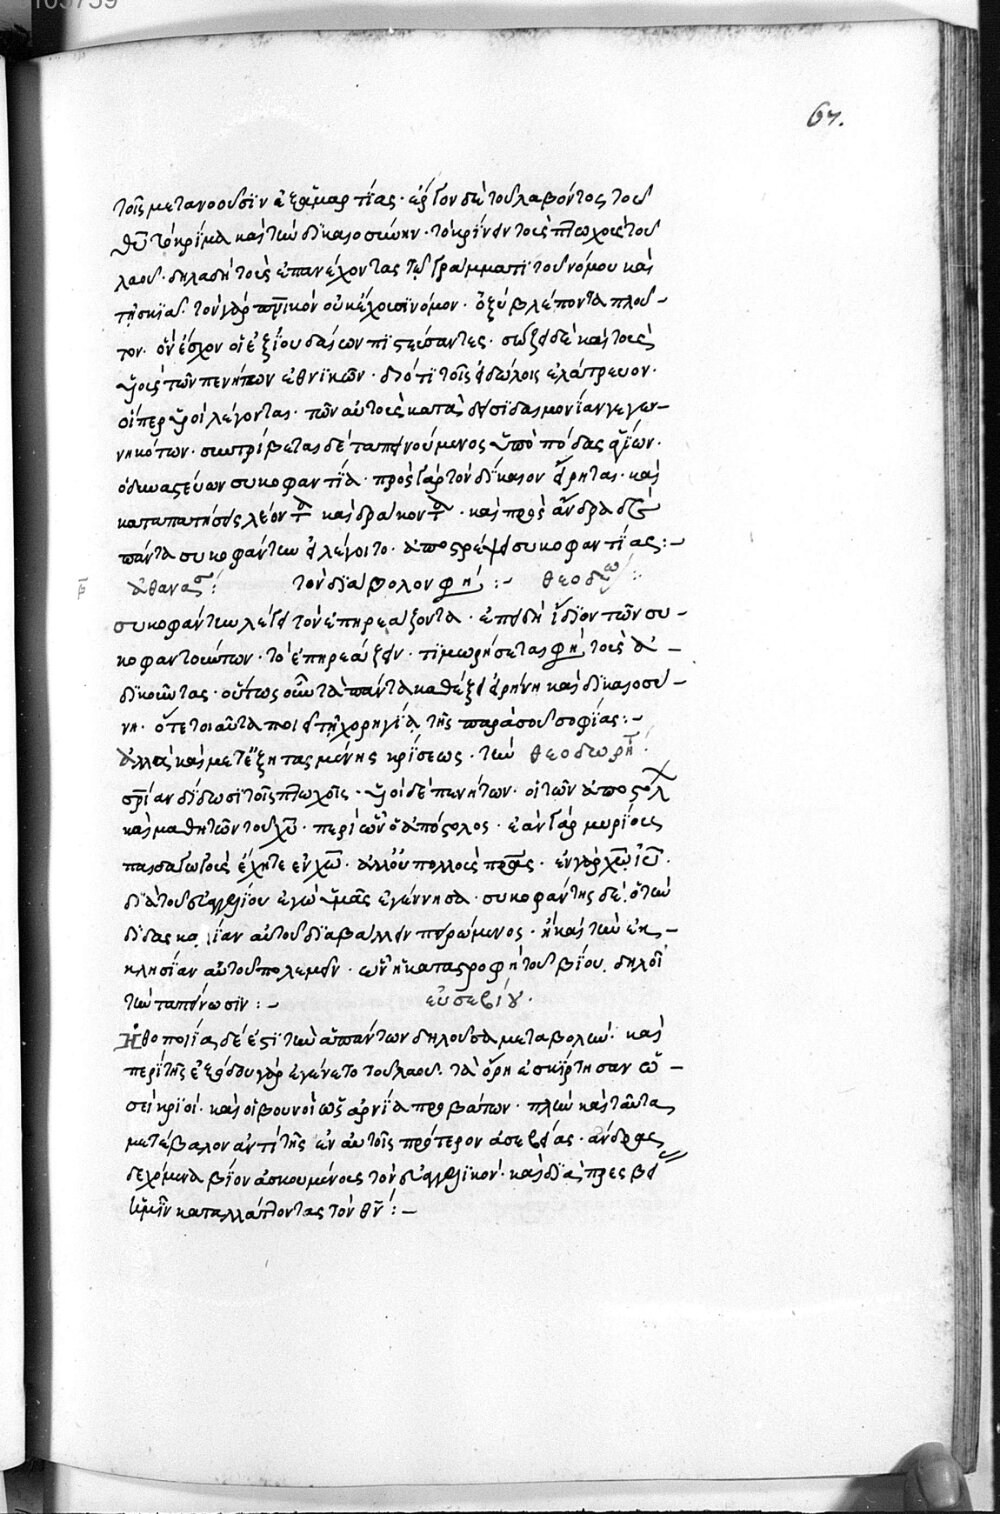 105759
67.
τοῖς μετανοοῦσϊν ἐξ ἁμαρτίας· ἔργον δὲ τοῦ λαβόντος τοῦ
θῦ τὸ κρίμα καὶ τὴν δικαιοσύνην· τὸ κρίνειν τοὺς πτωχοὺς τοῦ
λαοῦ· δηλαδὴ τοὺς ἐπανέχοντας τῷ γράμματι τοῦ νόμου καὶ
τῇ σκιᾷ· τὸν γὰρ πνικὸν οὐκ ἔχουσϊ νόμον· ὀξὺ βλέποντα πλοῦ-
τον· ὃν ἔσχον οἱ ἐξ ἰουδαίων πιστεύσαντες· σώζει δὲ καὶ τοὺς
υἱοὺς τῶν πενήτων ἐθνικῶν· διότι τοῖς εἰδώλοις ἐλάτρευον·
οἵπερ υἱοὶ λέγονται· τῶν αὐτοὺς κατὰ δεισιδαιμονίαν γεγεν-
νηκότων· συντρίβεται δὲ ταπεινούμενος ὑπὸ πόδας ἁγίων·
ὁ διώας εὔαν συκοφαντίᾳ· πρὸς γὰρ τὸν δίκαιον εἴρηται· καὶ
καταπατήσεις λέοντα καὶ δράκοντα· καὶ πρὸς ἄνδρα δὲ
πάντα συκοφάντην λέγοιτο· ἀποστρέψει συκοφαντίας:-
ἀθανασ: τὸν διάβολον φη:- θεοδώ:
συκοφάντην λέγει τὸν ἐπηρεάζοντα· ἐπειδὴ ἴδιον τῶν συ-
κοφαντούντων· τὸ ἐπηρεάζειν· τιμωρήσεται φη τοὺς ἀ-
δικοῦντας· οὕτως οὖν τὰ πάντα καθέξει εἰρήνη καὶ δικαιοσύ-
νη· ὅτε τοιαῦτα ποιεῖ τῇ χορηγίᾳ τῆς παρὰ σοῦ σοφίας:-
ἀλλὰ καὶ μετ' ἐξητασμένης κρίσεως· τὴν θεοδωρη:
σρίαν δίδωσι τοῖς πτωχοῖς· υἱοὶ δὲ πενήτων· οἱ τῶν ἀποστολ
καὶ μαθητῶν τοῦ χῦ· περὶ ὧν ὁ ἀπόστολος· ἐὰν γὰρ μυρίους
παιδαγωγοὺς ἔχητε ἐν χῶ· ἀλλ' οὐ πολλοὺς πρας· ἐν γὰρ χῶ ἰῦ·
διὰ τοῦ εὐαγγελίου ἐγὼ ὑμᾶς ἐγέννησα· συκοφάντης δὲ· ὁ τὴν
διδασκαλίαν αὐτοῦ διαβάλλειν πειρώμενος· ἢ καὶ τὴν ἐκ-
κλησίαν αὐτοῦ πολεμεῖν· ὧν ἡ καταστροφὴ τοῦ βίου, δηλοῖ
τὴν ταπείνωσιν:- εὐσεβίου·
Ἠθοποιία δέ ἐστι τὴν ἁπάντων δηλοῦσα μεταβολήν· καὶ
περὶ τῆς ἐξόδου γὰρ ἐγένετο τοῦ λαοῦ· τὰ ὄρη ἐσκίρτησαν ὡ-
σεὶ κριοὶ· καὶ οἱ βουνοὶ ὡς ἀρνία προβάτων· πλὴν καὶ ταῦτα
μετέβαλον ἀντὶ τῆς ἐν αὐτοῖς πρότερον ἀσεβείας· ἄνδρας
δεχόμενα βίον ἀσκουμένους τὸν εὐαγγελικόν· καὶ διὰ πρεσβεί
ὑμῖν καταλλάττοντας τὸν θν:-